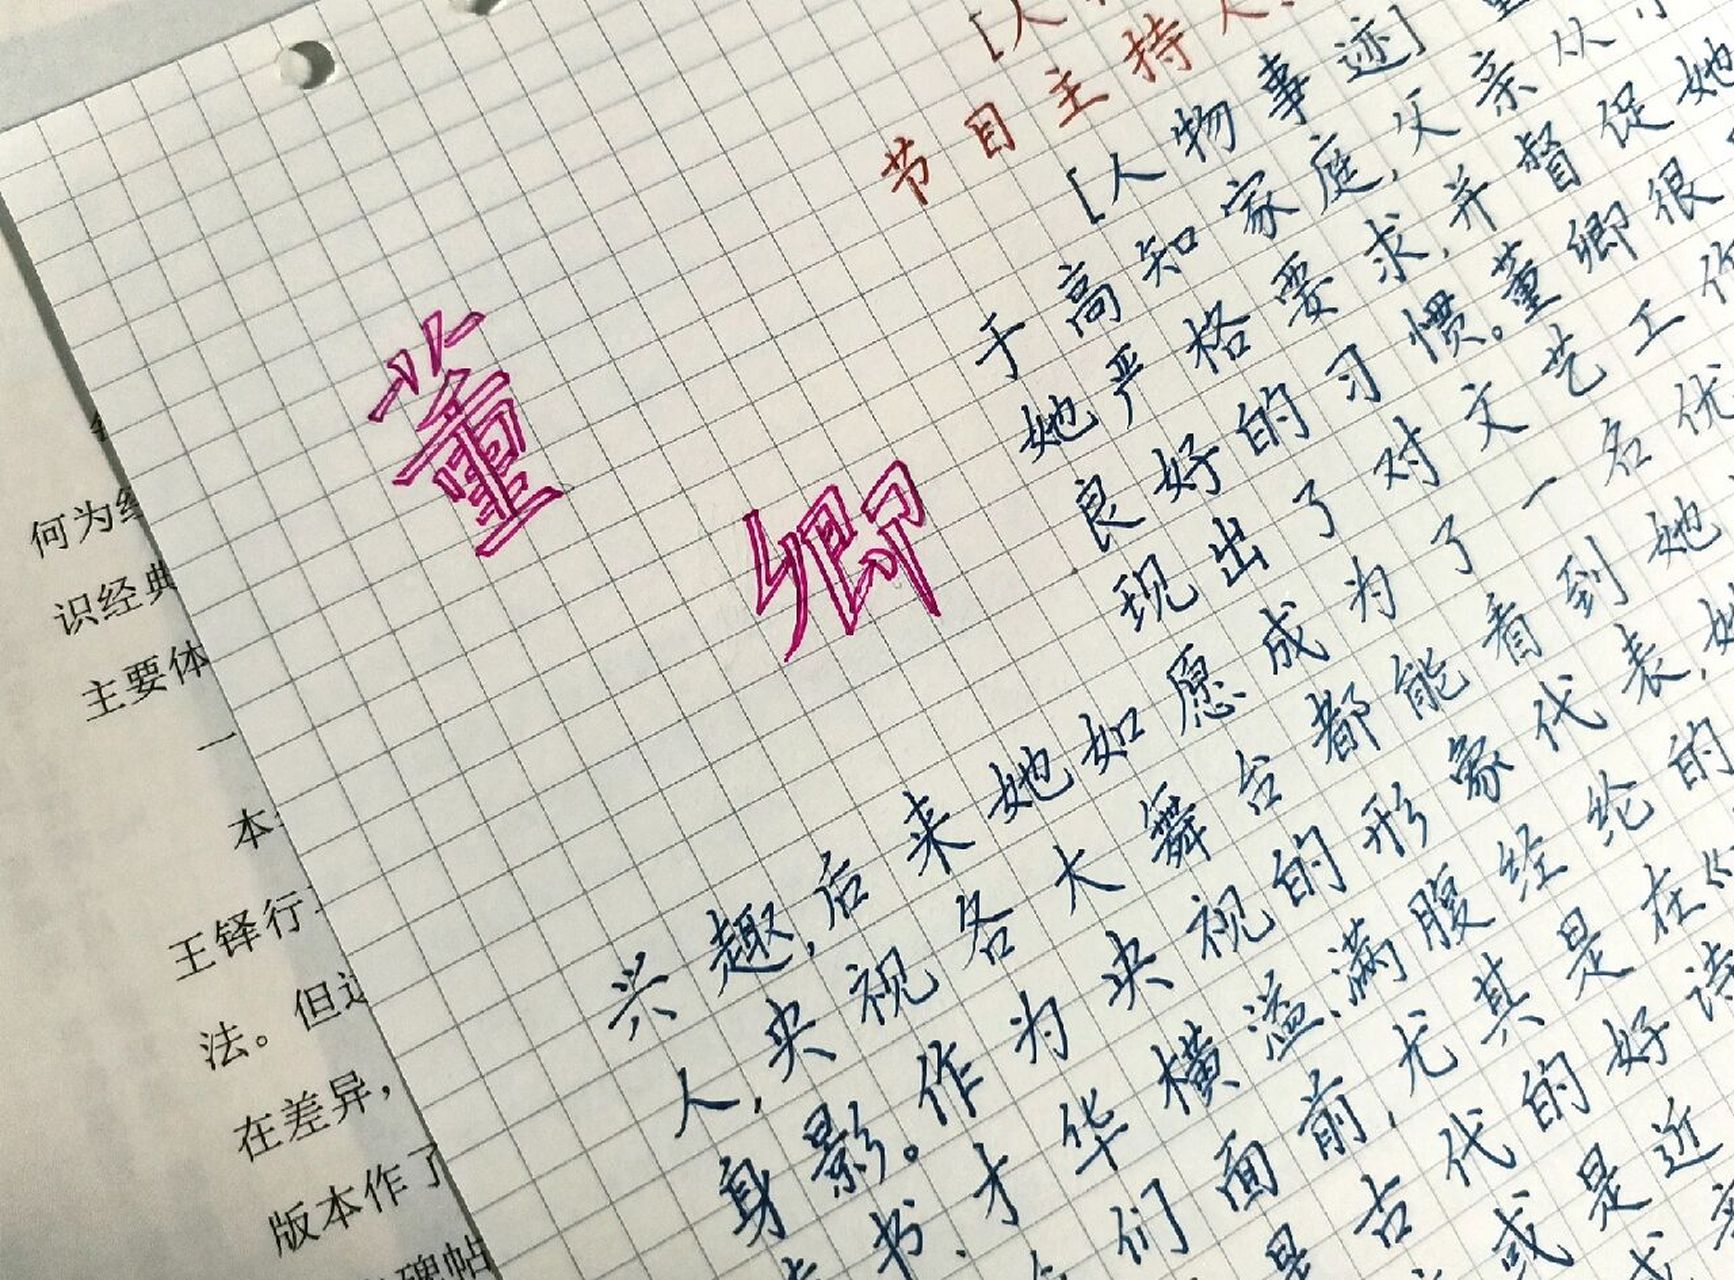 [人
节目主持人
[人物事迹]
于高知家庭,父亲从小
她严格要求,并督促她
良好的习惯。董卿很
现出了对文艺工作
董卿
兴趣,后来她如愿成为了一名优
人,央视各大舞台都能看到她
身影。作为央视的形象代表,她
书、才华横溢、满腹经纶的
们面前,尤其是在《
是古代的好诗
或是近
何为经
识经典
主要体
一
本
王铎行
法。但这
在差异,
版本作了
碑帖